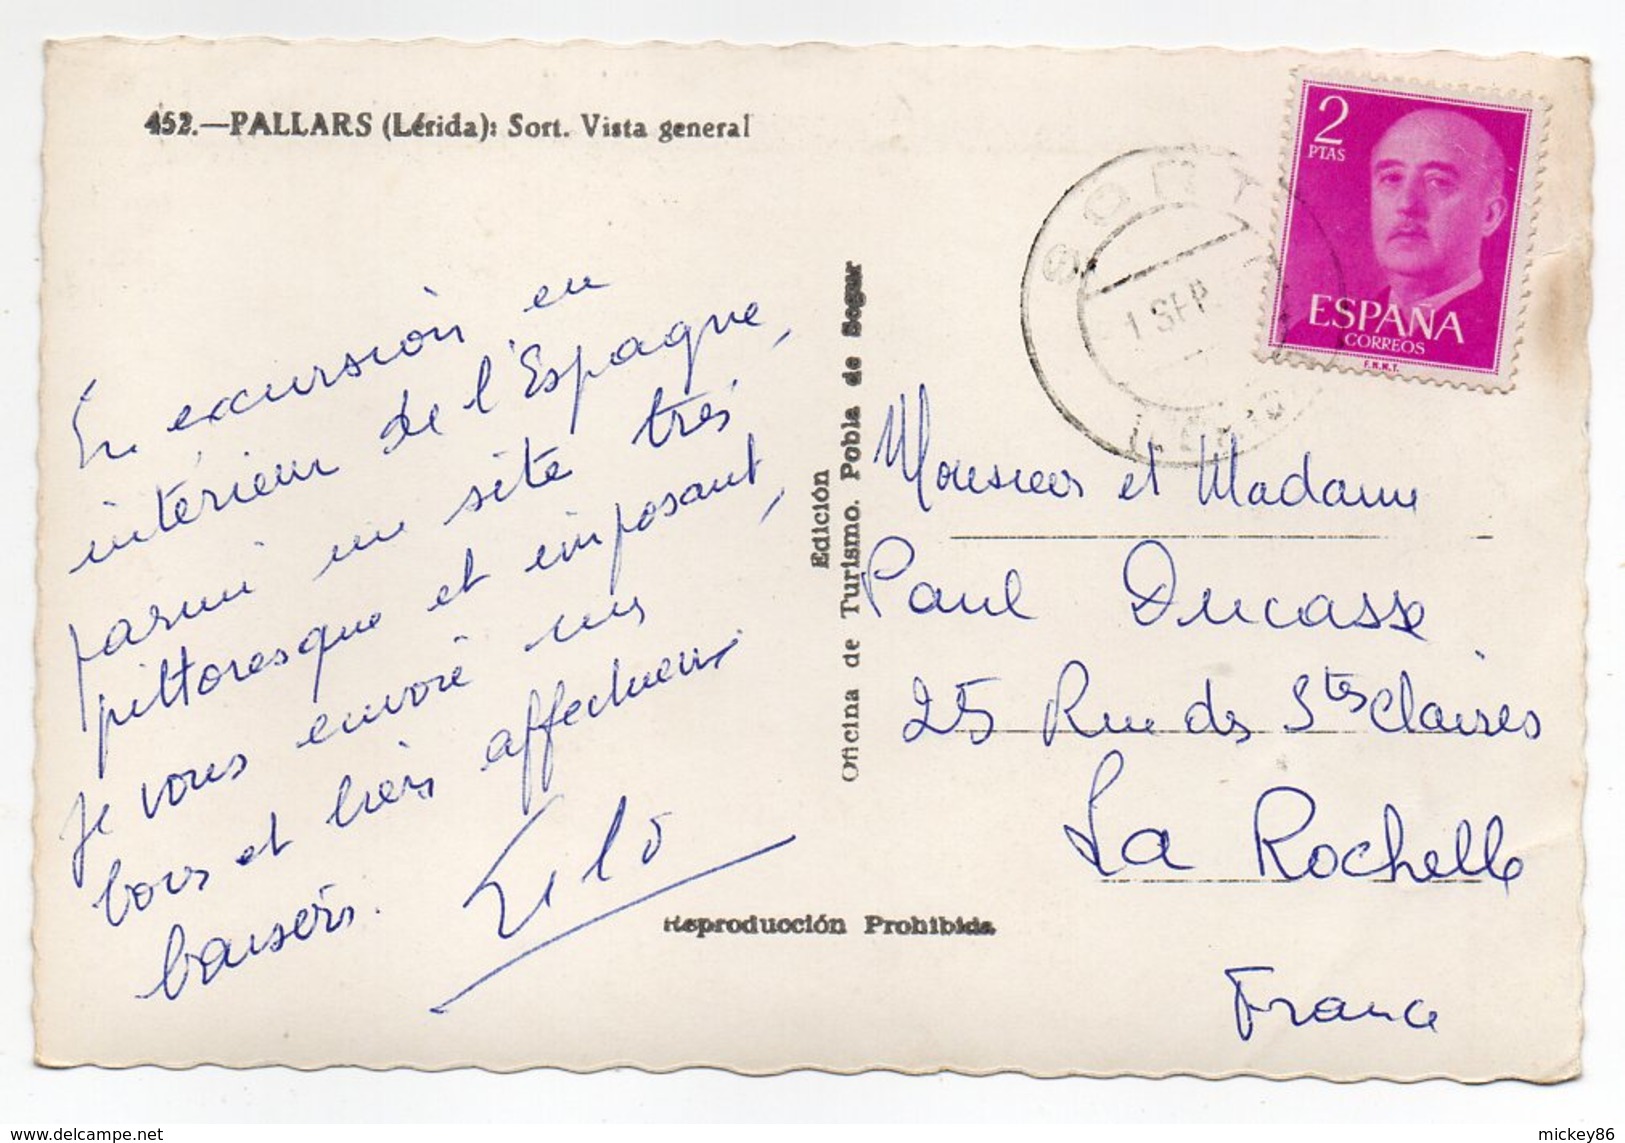 452.—PALLARS (Lérida): Sort. Vista general
2
PTAS
ESPAÑA
CORREOS
F.N.M.T.
SORT
1 SEP
En excursion en
intérieur de l'Espagne,
parmi un site très
pittoresque et imposant,
je vous envoie mes
bons et biens affectueux
baisers.
Edición
Oficina de Turismo. Pobla de Segur
Monsieur et Madame
Paul Ducasse
25 Rue des Stes Claires
La Rochelle
France
Reproducción Prohibida
delcampe.net
mickey86